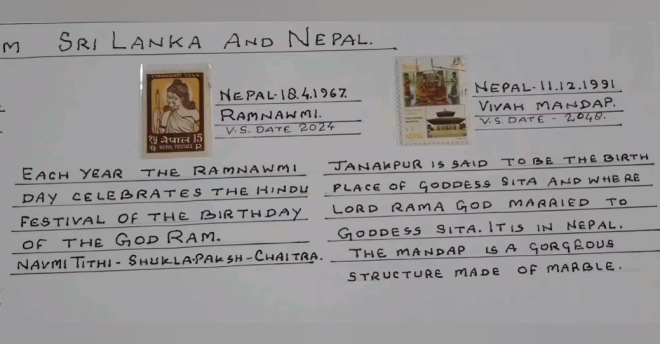 M SRI LANKA AND NEPAL.
नेपाल 15
NEPAL POSTAGE P
NEPAL-18.4.1967.
RAMNAWMI.
V.S. DATE 2024
NEPAL-11.12.1991
VIVAH MANDAP.
V.S. DATE - 2048.
EACH YEAR THE RAMNAWMI
DAY CELEBRATES THE HINDU
FESTIVAL OF THE BIRTHDAY
OF THE GOD RAM.
NAVMI TITHI - SHUKLA.PAKSH-CHAITRA.
JANAKPUR IS SAID TO BE THE BIRTH
PLACE OF GODDESS SITA AND WHERE
LORD RAMA GOD MARRIED TO
GODDESS SITA. IT IS IN NEPAL.
THE MANDAP IS A GORGEOUS
STRUCTURE MADE OF MARBLE.